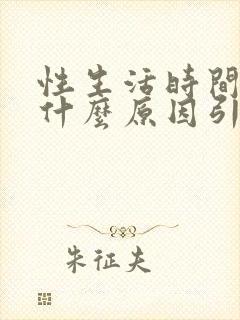 性生活時間
什麼原因引
朱征夫